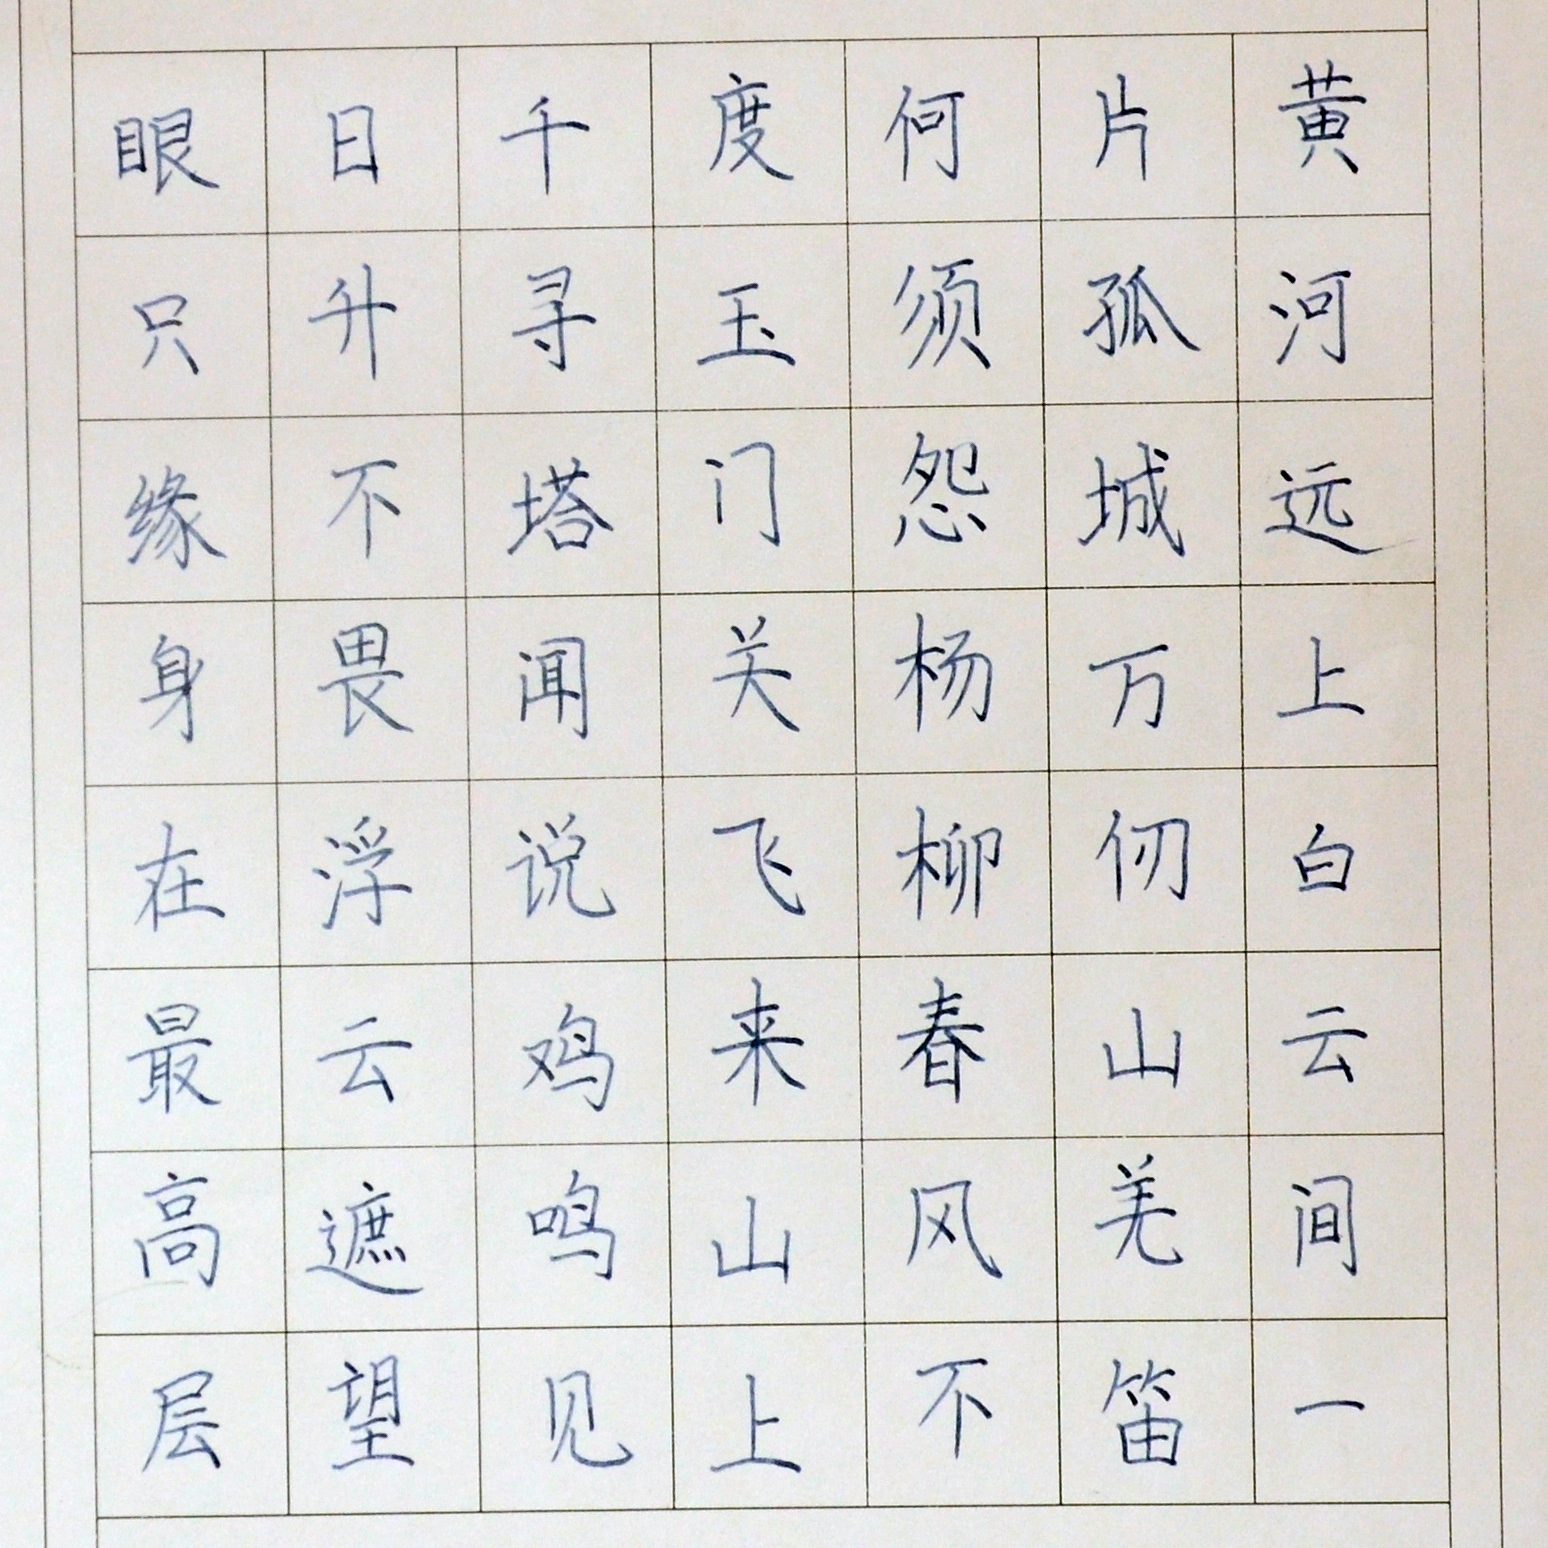 黄河远上白云间一
片孤城万仞山羌笛
何须怨杨柳春风不
度玉门关飞来山上
千寻塔闻说鸡鸣见
日升不畏浮云遮望
眼只缘身在最高层